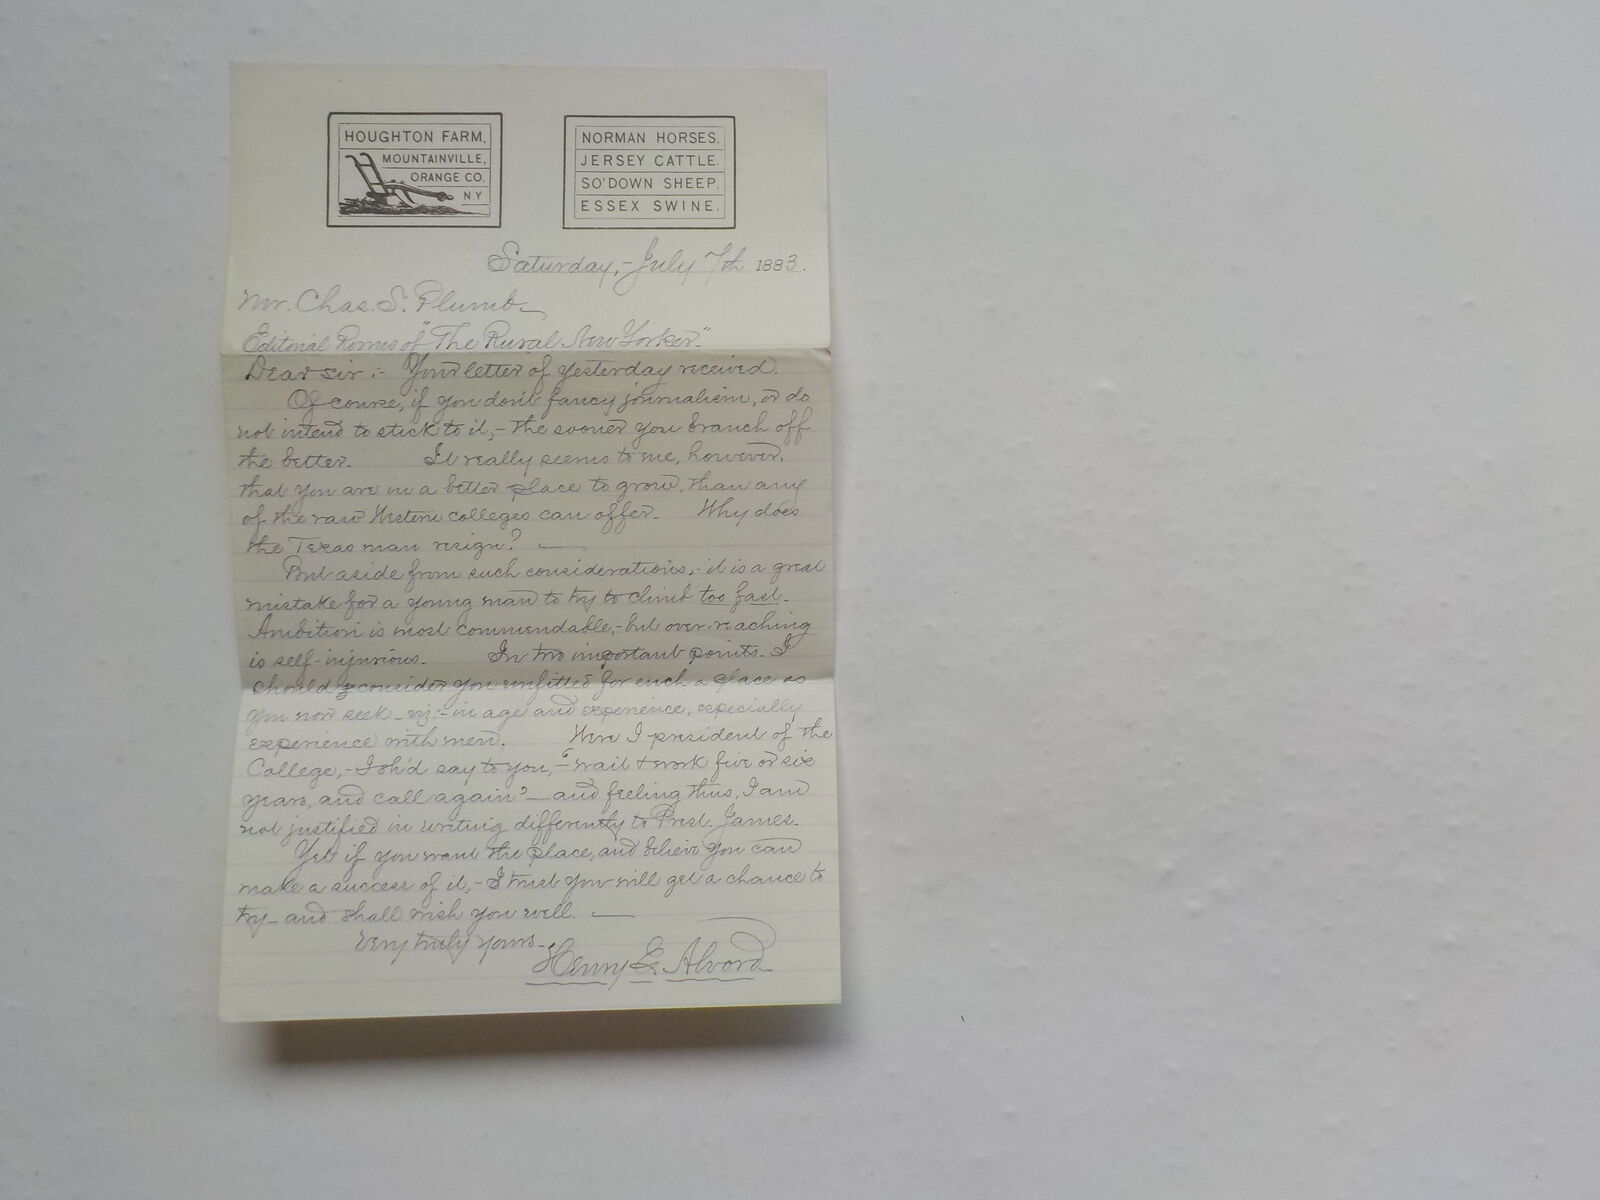 HOUGHTON FARM,
MOUNTAINVILLE,
ORANGE CO.
N.Y
NORMAN HORSES.
JERSEY CATTLE.
SO'DOWN SHEEP.
ESSEX SWINE.
Saturday,- July 7th 1883.
Mr. Chas. S. Plumb
Editorial Rooms of "The Rural New Yorker."
Dear sir :- Your letter of yesterday received.
Of course, if you don't fancy journalism, or do
not intend to stick to it,- the sooner you branch off
the better. It really seems to me, however,
that you are in a better place to grow, than any
of the raw Western colleges can offer. Why does
the Texas man resign? —
But aside from such considerations,- it is a great
mistake for a young man to try to climb too fast.
Ambition is most commendable,- but over-reaching
is self-injurious. In two important points I
should consider you unfitted for such a place as
you now seek - viz:- in age and experience, especially
experience with men. Were I president of the
College,- I sh'd say to you,- "wait & work five or six
years, and call again" — and feeling thus, I am
not justified in writing differently to Prest. James.
Yet if you want the place, and believe you can
make a success of it,- I trust you will get a chance to
try - and shall wish you well. —
Very truly yours-
Henry E. Alvord